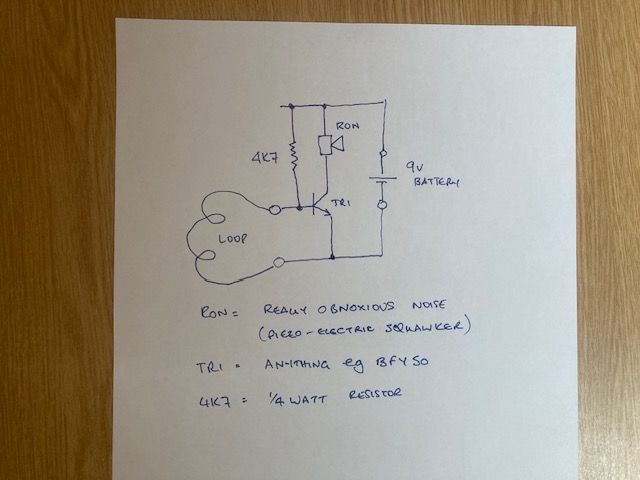 RON
4K7
9V
BATTERY
TR1
LOOP
RON = REALLY OBNOXIOUS NOISE
(PIEZO-ELECTRIC SQUAWKER)
TR1 = ANYTHING eg BFY50
4K7 = 1/4 WATT RESISTOR